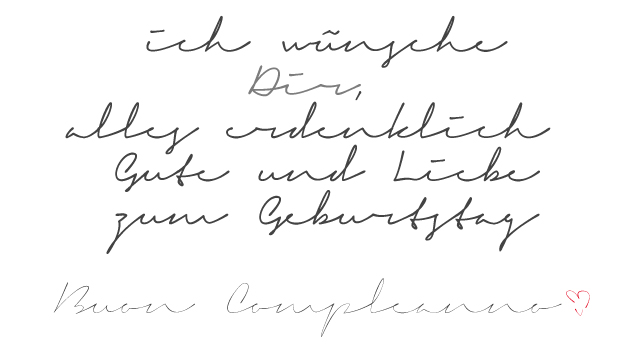 ich wünsche
Dir,
alles erdenklich
Gute und Liebe
zum Geburtstag
Buon Compleanno